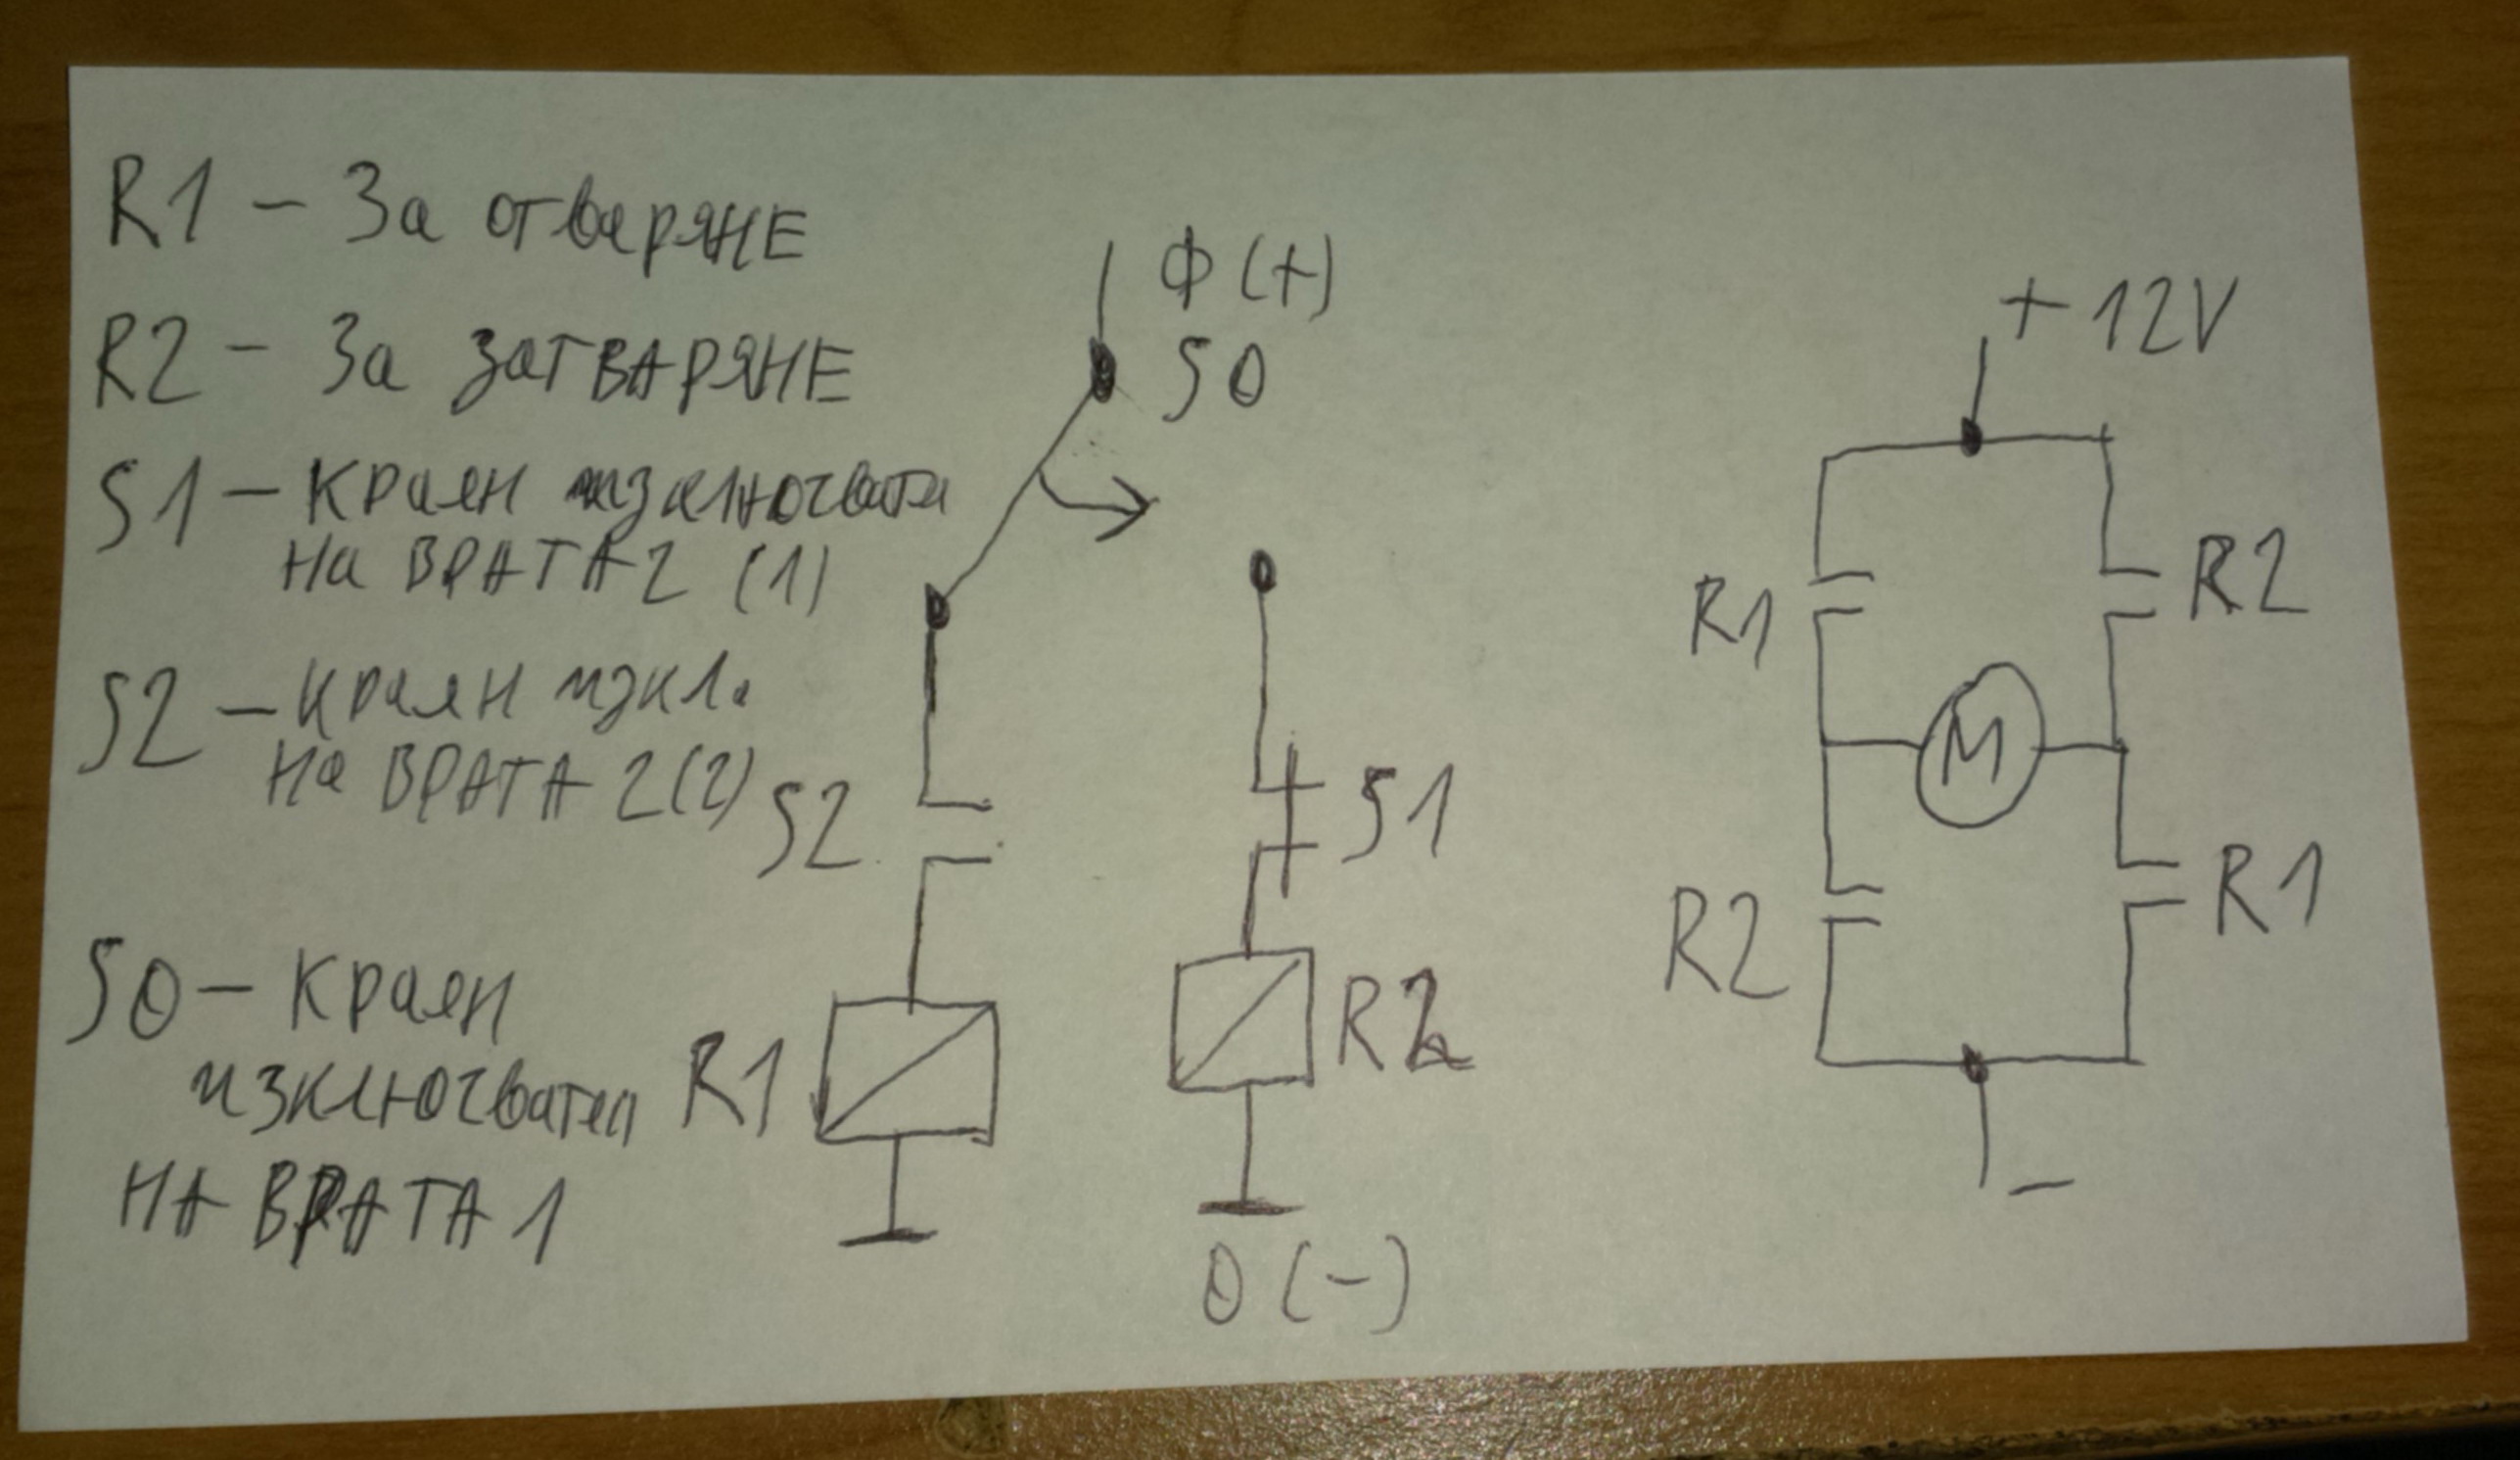 R1 - За отварянЕ
R2 - За затВАРЯНЕ
S1 - Краен изключвател
на ВРАТА 2 (1)
S2 - краен изкл.
на ВРАТА 2 (2)
S0 - Краен
изключвател
НА ВРАТА 1
Ф (+)
S0
S2
S1
R1
R2
0 (-)
+12V
R1
R2
M
R2
R1
-